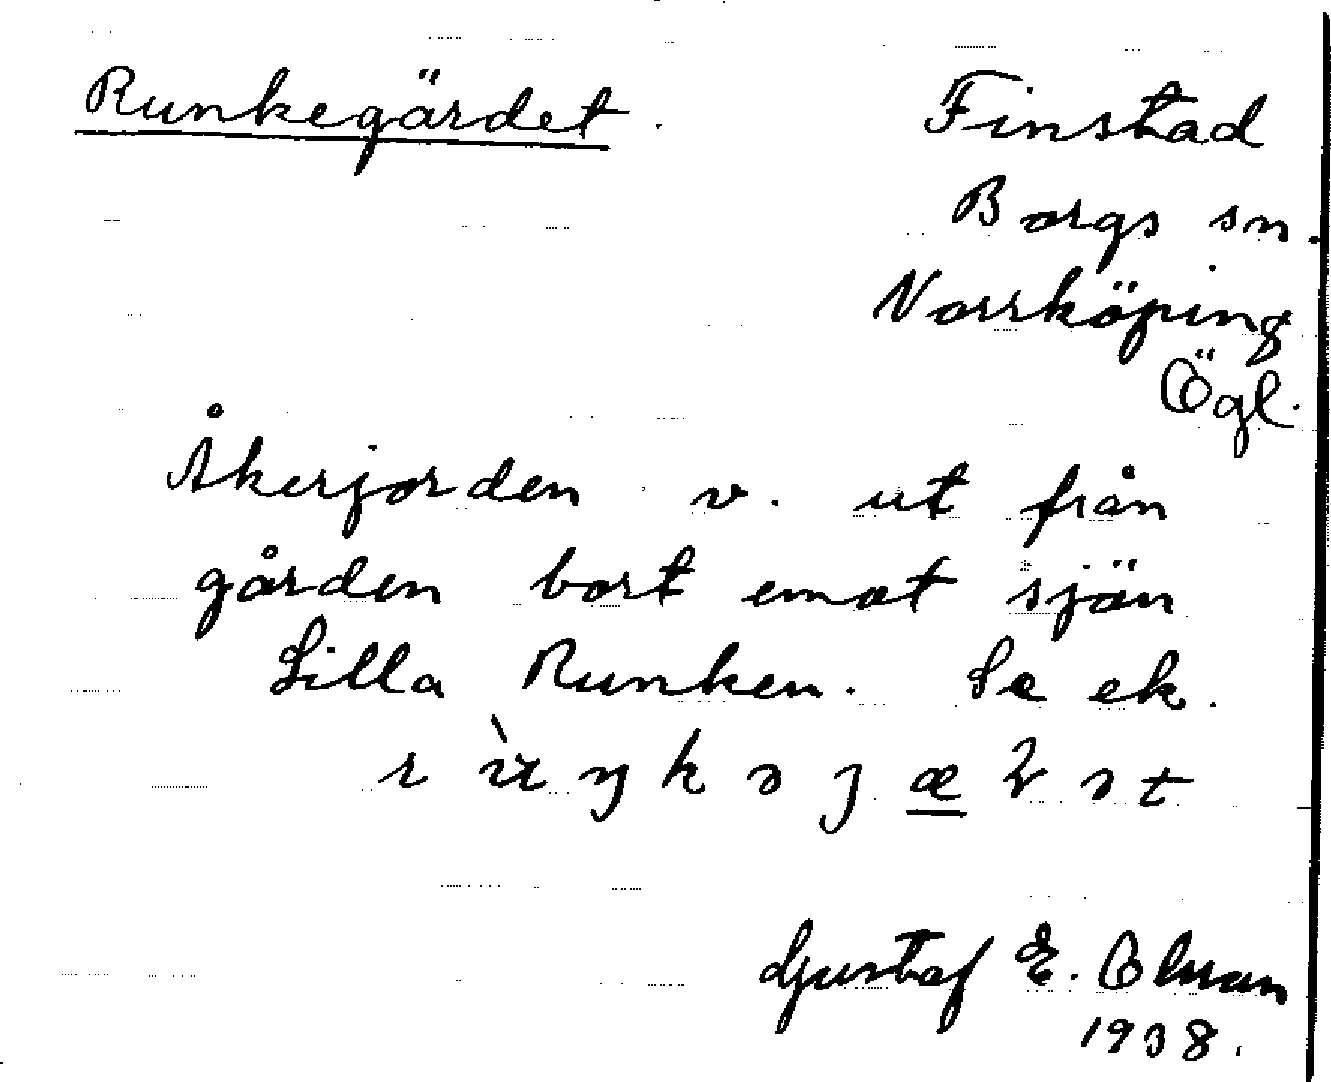 Runkegärdet.
Finstad
Borgs sn.
Norrköping
Ögl.
Åkerjorden v. ut från
gården bort emot sjön
Lilla Runken. Se ek.
Gustaf E. Olson
1938.